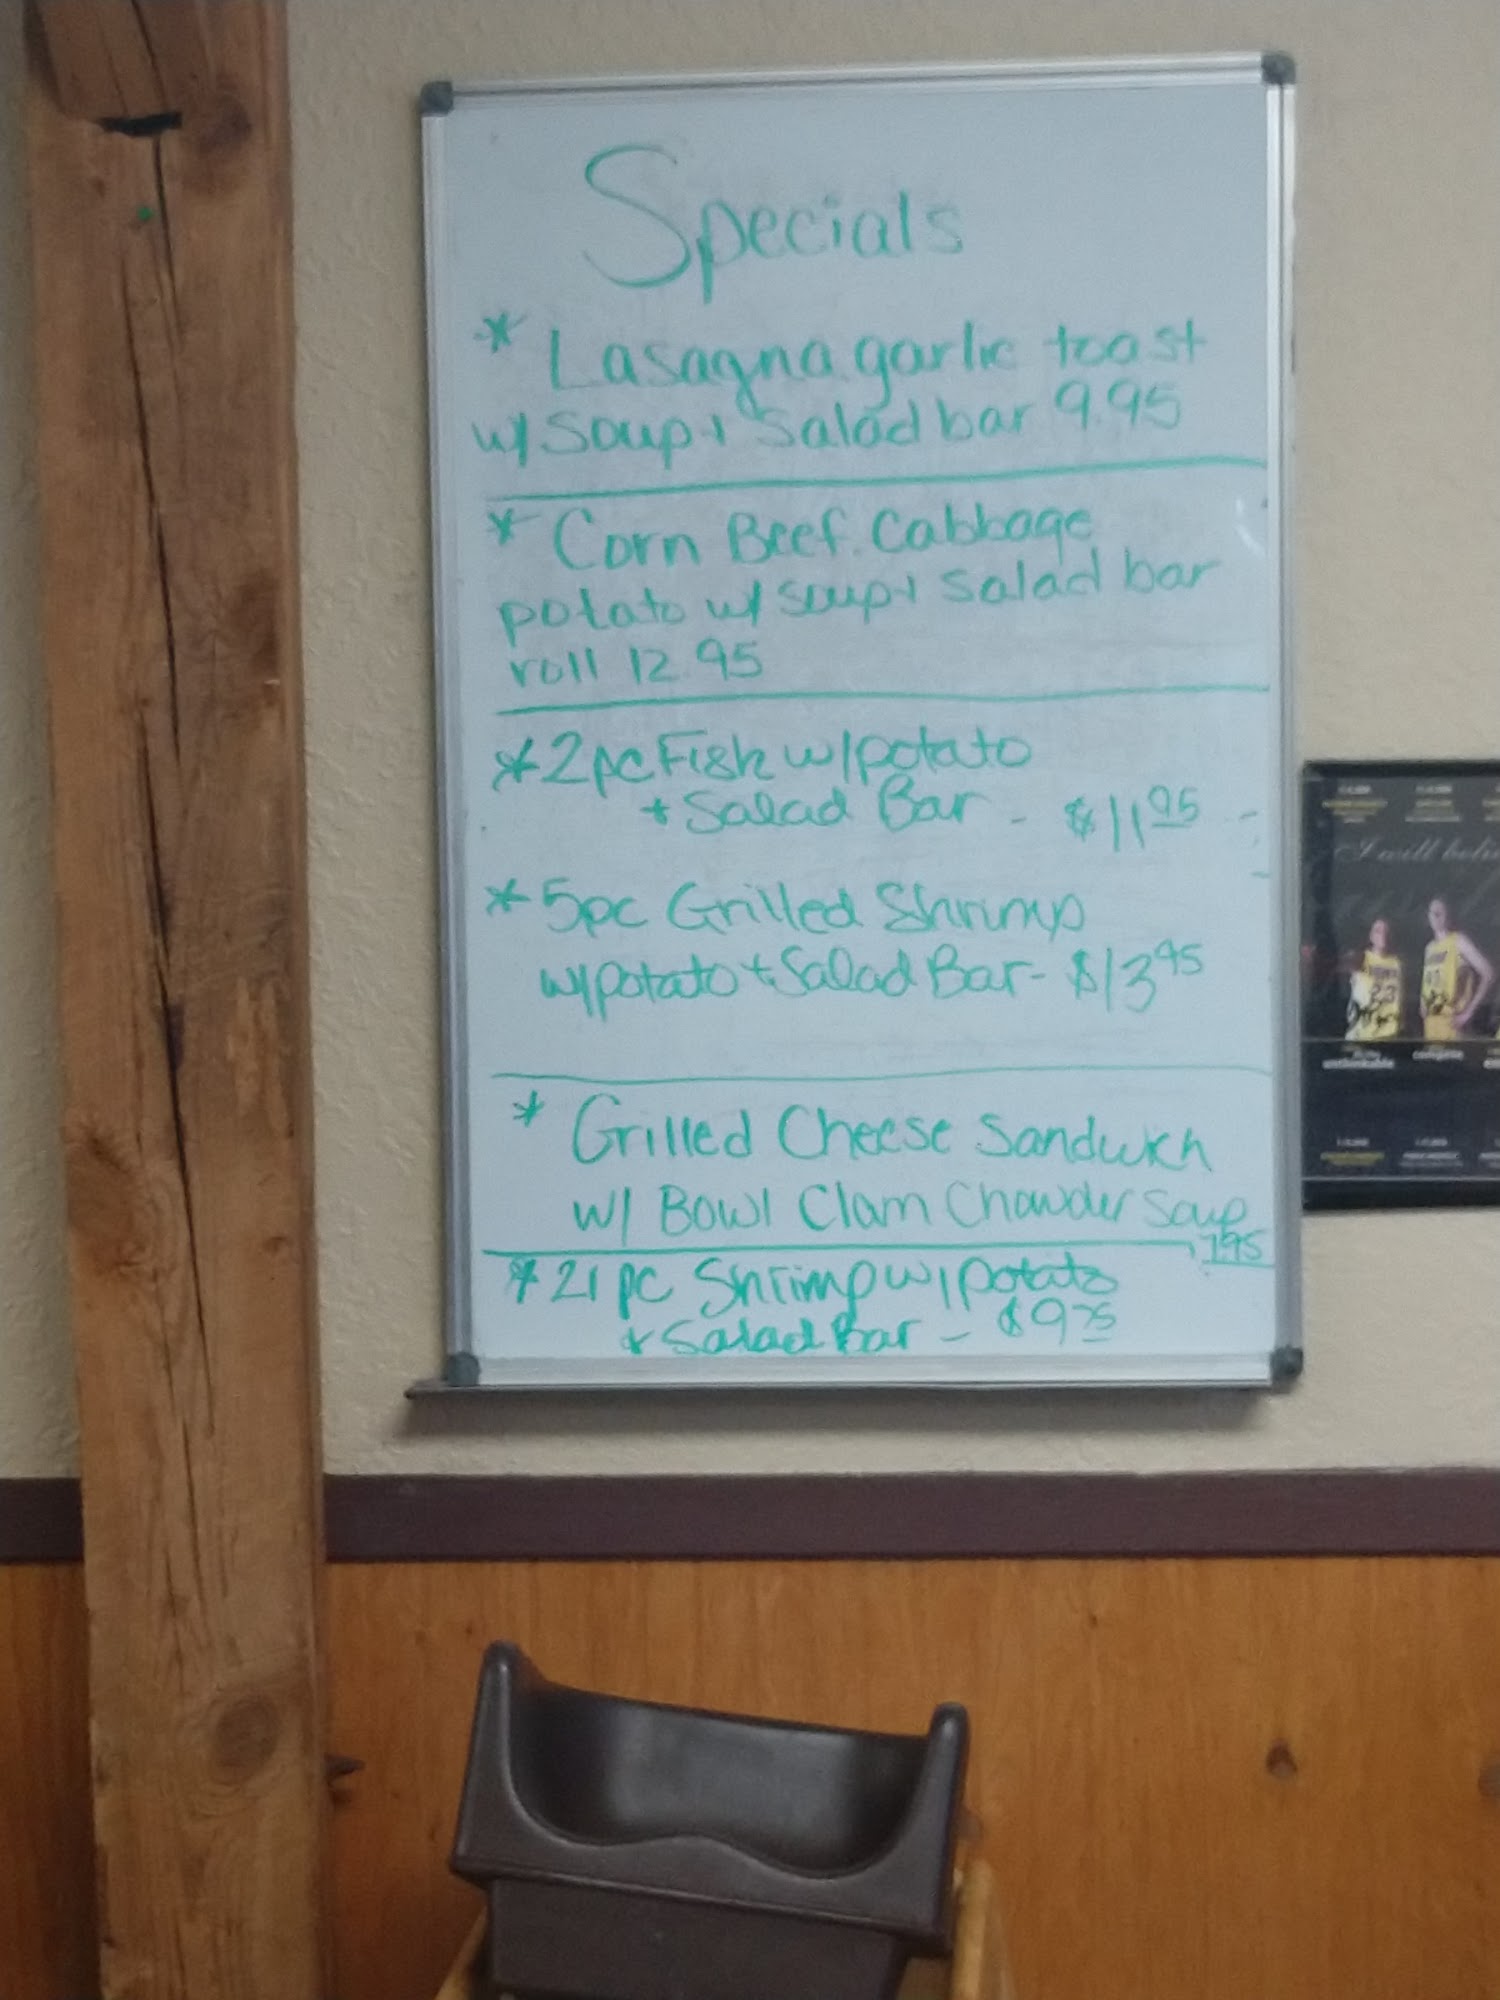 Specials
* Lasagna garlic toast
w/ soup + salad bar 9.95
* Corn Beef. Cabbage
potato w/ soup + salad bar
roll 12.95
* 2pc Fish w/potato
+ Salad Bar - $11 95
* 5pc Grilled Shrimp
w/potato + Salad Bar - $13 95
* Grilled Cheese Sandwich
w/ Bowl Clam Chowder Soup
7.95
* 21 pc Shrimp w/potato
+ Salad Bar - $9 75
I will
unthinkable
compete